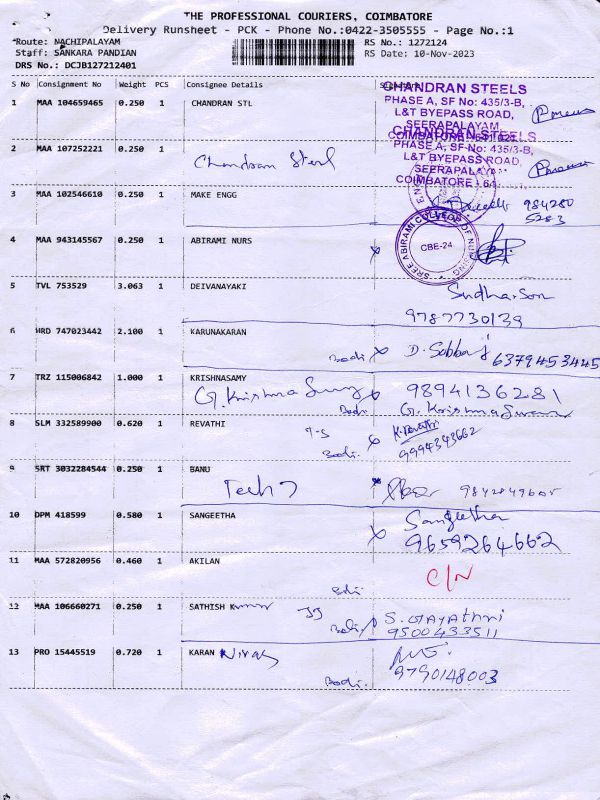 THE PROFESSIONAL COURIERS, COIMBATORE
Delivery Runsheet - PCK - Phone No.:0422-3505555 - Page No.:1
Route: NACHIPALAYAM RS No.: 1272124
Staff: SANKARA PANDIAN RS Date: 10-Nov-2023
DRS No.: DCJB127212401
S No Consignment No Weight PCS Consignee Details
CHANDRAN STEELS
1 MAA 104659465 0.250 1 CHANDRAN STL
PHASE A, SF No: 435/3-B,
L&T BYEPASS ROAD,
SEERAPALAYAM,
CHANDRAN STEELS
2 MAA 107252221 0.250 1
PHASE A, SF No: 435/3-B,
L&T BYEPASS ROAD,
Chandran Steel
COIMBATORE - 641
3 MAA 102546610 0.250 1 MAKE ENGG
984280
5283
4 MAA 943145567 0.250 1 ABIRAMI NURS
SREE ABIRAMI COLLEGE OF NURSING
CBE-24
5 TVL 753529 3.063 1 DEIVANAYAKI
Sudharson
9787730139
6 HRD 747023442 2.100 1 KARUNAKARAN
6379453445
7 TRZ 115006842 1.000 1 KRISHNASAMY
9894136281
8 SLM 332589900 0.620 1 REVATHI
K. Revathi
9994343662
9 SRT 3032284544 0.250 1 BANU
9842849605
10 DPM 418599 0.580 1 SANGEETHA
Sangeetha
9659264662
11 MAA 572820956 0.460 1 AKILAN
C/N
12 MAA 106660271 0.250 1 SATHISH Kumar
S. GAYATHRI
9500433511
13 PRO 15445519 0.720 1 KARAN
9790148003